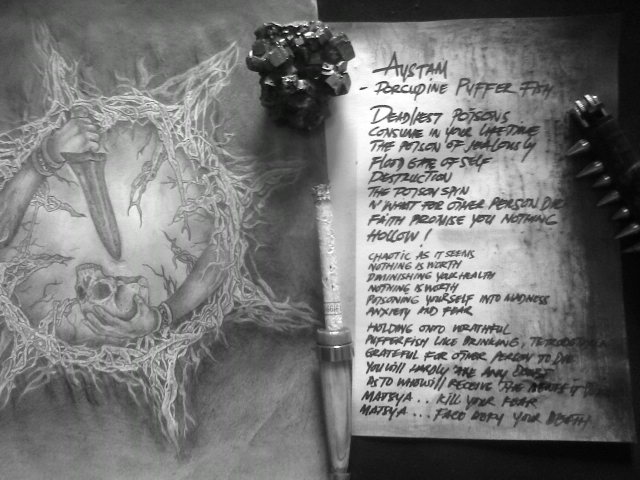 AUSTAM
- PORCUPINE PUFFER FISH
DEADLIEST POISONS
CONSUME IN YOUR LIFETIME
THE POISON OF JEALOUSLY
FLOOD GATE OF SELF
DESTRUCTION
THE POISON SPIN
N WHAT FOR OTHER PERSON DIE
FAITH PROMISE YOU NOTHING
HOLLOW!
CHAOTIC AS IT SEEMS
NOTHING IS WORTH
DIMINISHING YOUR HEALTH
NOTHING IS WORTH
POISONING YOURSELF INTO MADNESS
ANXIETY AND FEAR
HOLDING ONTO WRATHFUL
PUFFERFISH LIKE DRINKING,
GRATEFUL FOR OTHER PERSON TO DIE
YOU WILL HARDLY ARE ANY DOUBT
AS TO WHO WILL RECEIVE THE
MATSYA... KILL YOUR FEAR
MATSYA... FACE DEFY YOUR DEATH